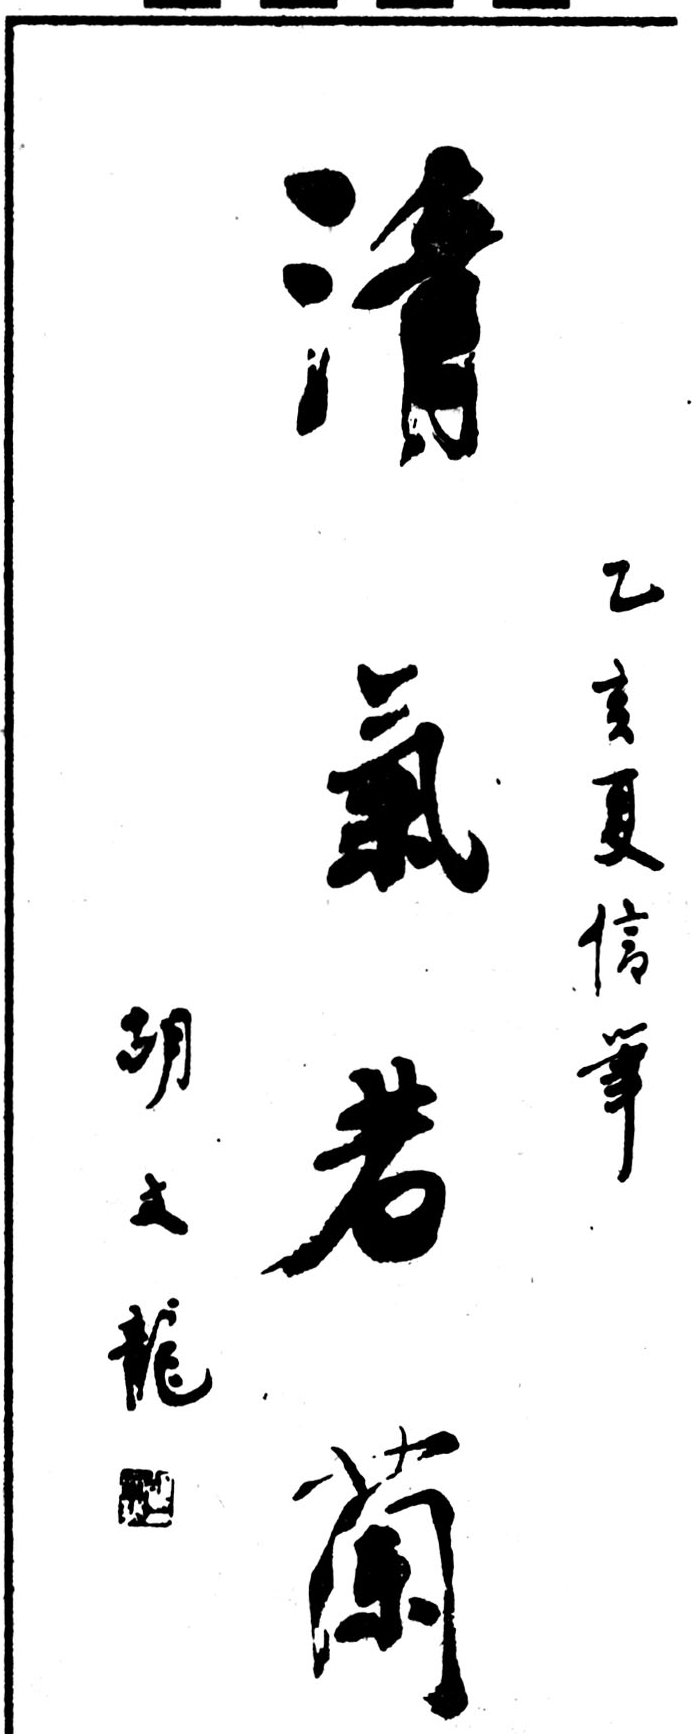 乙亥夏信筆
清氣若蘭
胡文龍